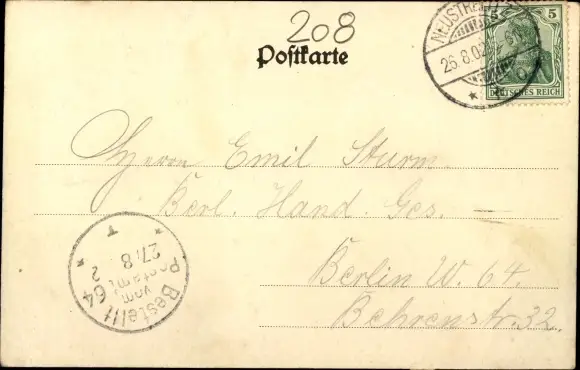 208
Postkarte
NEUSTRE
26.8.02
5
DEUTSCHES REICH
Herrn Emil Sturm
Berl. Hand. Ges. —
Berlin W. 64.
Behrenstr. 32.
Bestellt
vom
Postamte 64
27/8 2
T